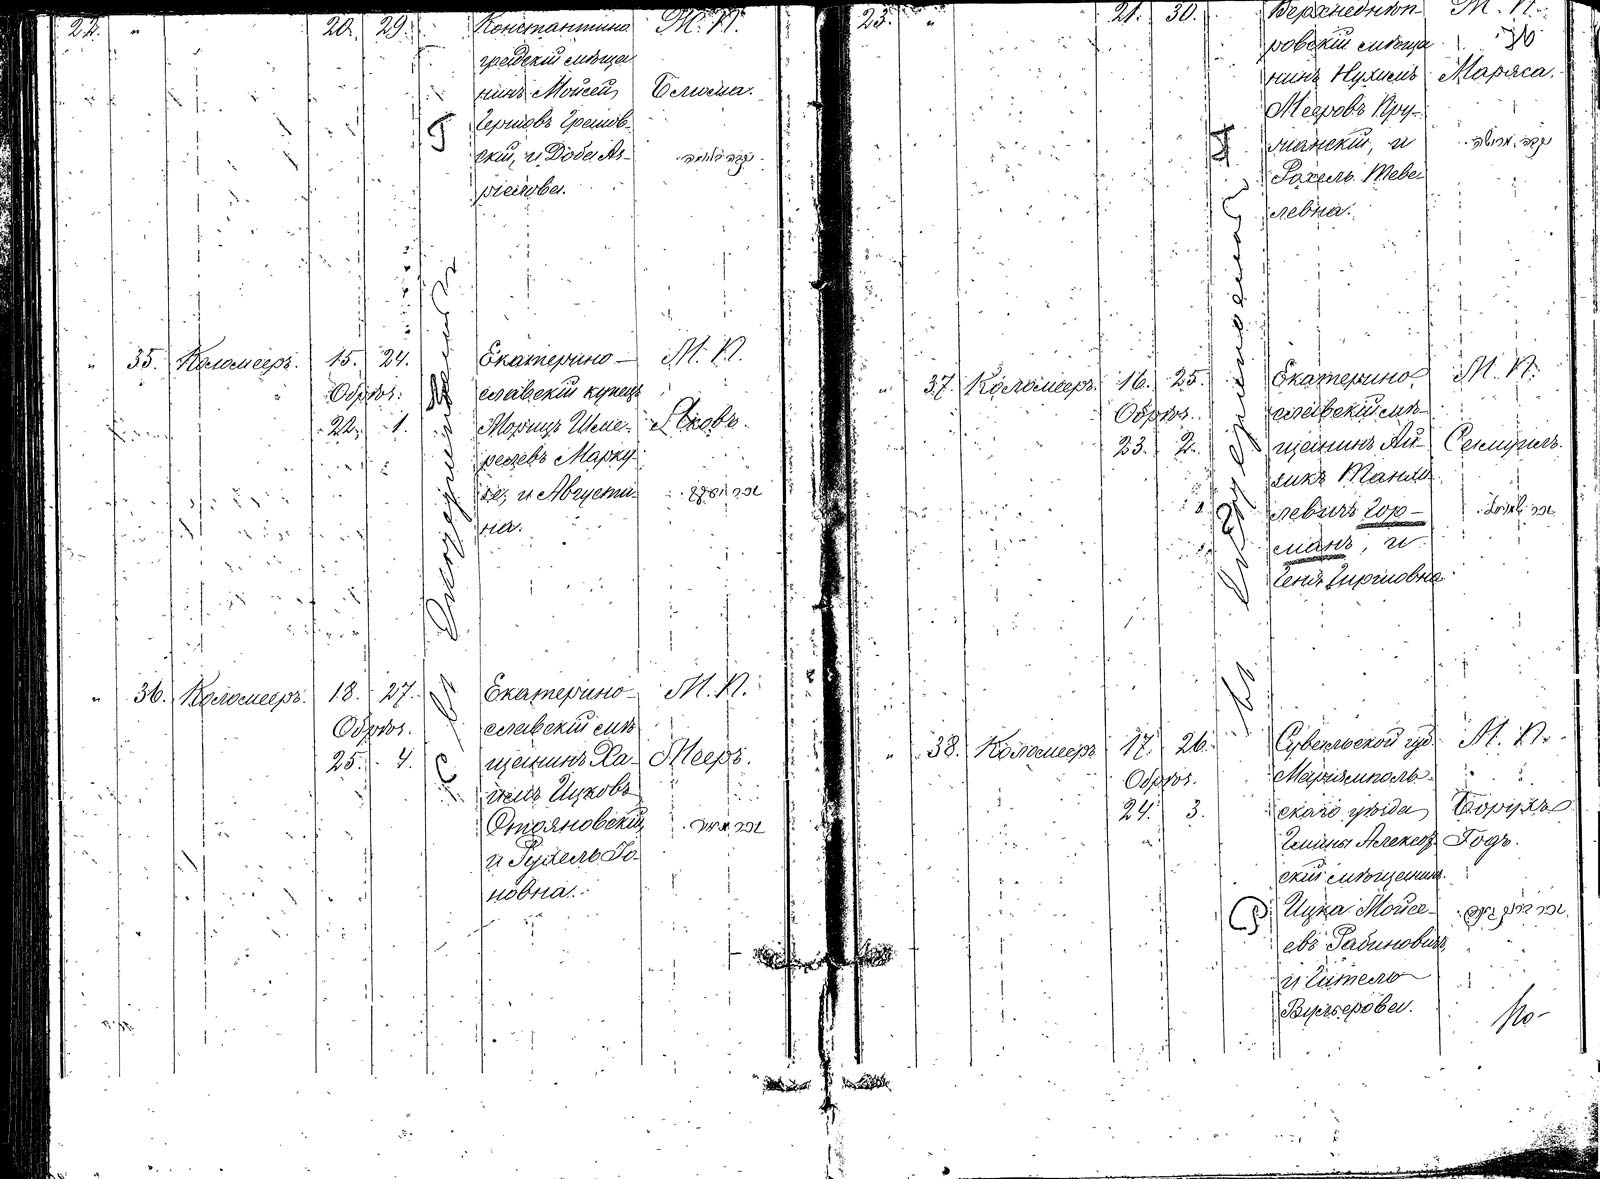 22. " 20. 29. Константино
градскій мѣща
нинъ Мойсей
Гершовъ
скій, и Доба
Ж. П.
Блюма.
נקבה בלומה
" 35. Коломееръ. 15. 24.
Обрѣз.
22. 1.
Екатерино-
славскій купецъ
Морицъ Шме-
релевъ Марку-
зе, и Августи-
на.
М. П.
Яковъ.
זכר יעקב
" 36. Коломееръ. 18. 27.
Обрѣз.
25. 4.
Екатерино-
славскій мѣ-
щанинъ Ха-
имъ Ицковъ
Стояновскій,
и Рухель Іо-
новна.
М. П.
Мееръ.
זכר מאיר
въ Екатеринославѣ
23. " 21. 30. Верхнеднѣп-
ровскій мѣща
нинъ Нухимъ
Мееровъ Кру-
чанскій, и
Рохель Теве-
левна.
М. П.
Ж.
Маряса.
נקבה מריאשה
" 37. Коломееръ. 16. 25.
Обрѣз.
23. 2.
Екатерино-
славскій мѣ-
щанинъ Ай-
зикъ Танхе-
левичъ Гор-
манъ, и
Геня Гиршовна
М. П.
Самуилъ.
זכר שמואל
" 38. Коломееръ 17. 26.
Обрѣз.
24. 3.
Сувалкской губ.
Маріямполь-
скаго уѣзда
Гмины Алексот-
скій мѣщанинъ
Ицка Мойсе-
евъ Рабиновичъ,
и Гитель
М. П.
Борухъ
Годъ.
въ Екатеринославѣ
По-